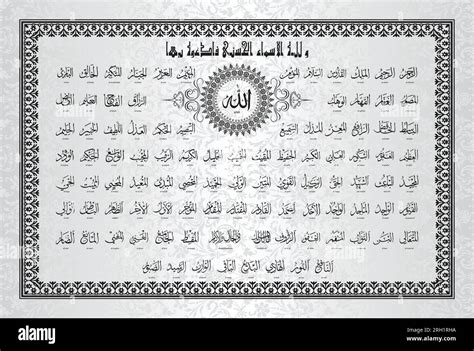 ولله الاسماء الحسنى فادعوه بها
الرحمن الرحيم الملك القدوس السلام المؤمن المهيمن العزيز الجبار المتكبر الخالق البارئ
المصور الغفار القهار الوهاب الله الرزاق الفتاح العليم القابض
الباسط الخافض الرافع المعز المذل السميع البصير الحكم العدل اللطيف الخبير
الحليم العظيم الغفور الشكور العلي الكبير الحفيظ المقيت الحسيب الجليل الكريم الرقيب المجيب الواسع الحكيم الودود
المجيد الباعث الشهيد الحق الوكيل القوي المتين الولي الحميد المحصي المبدئ المعيد المحيي المميت الحي
القيوم الواجد الماجد الواحد الأحد الصمد القادر المقتدر المقدم المؤخر الأول الآخر الظاهر الباطن الوالي
المتعالي البر التواب المنتقم العفو الرؤوف المقسط الجامع الغني المغني المانع الضار
النافع النور الهادي البديع الباقي الوارث الرشيد الصبور
alamy
Image ID: 2RH1RHA
www.alamy.com